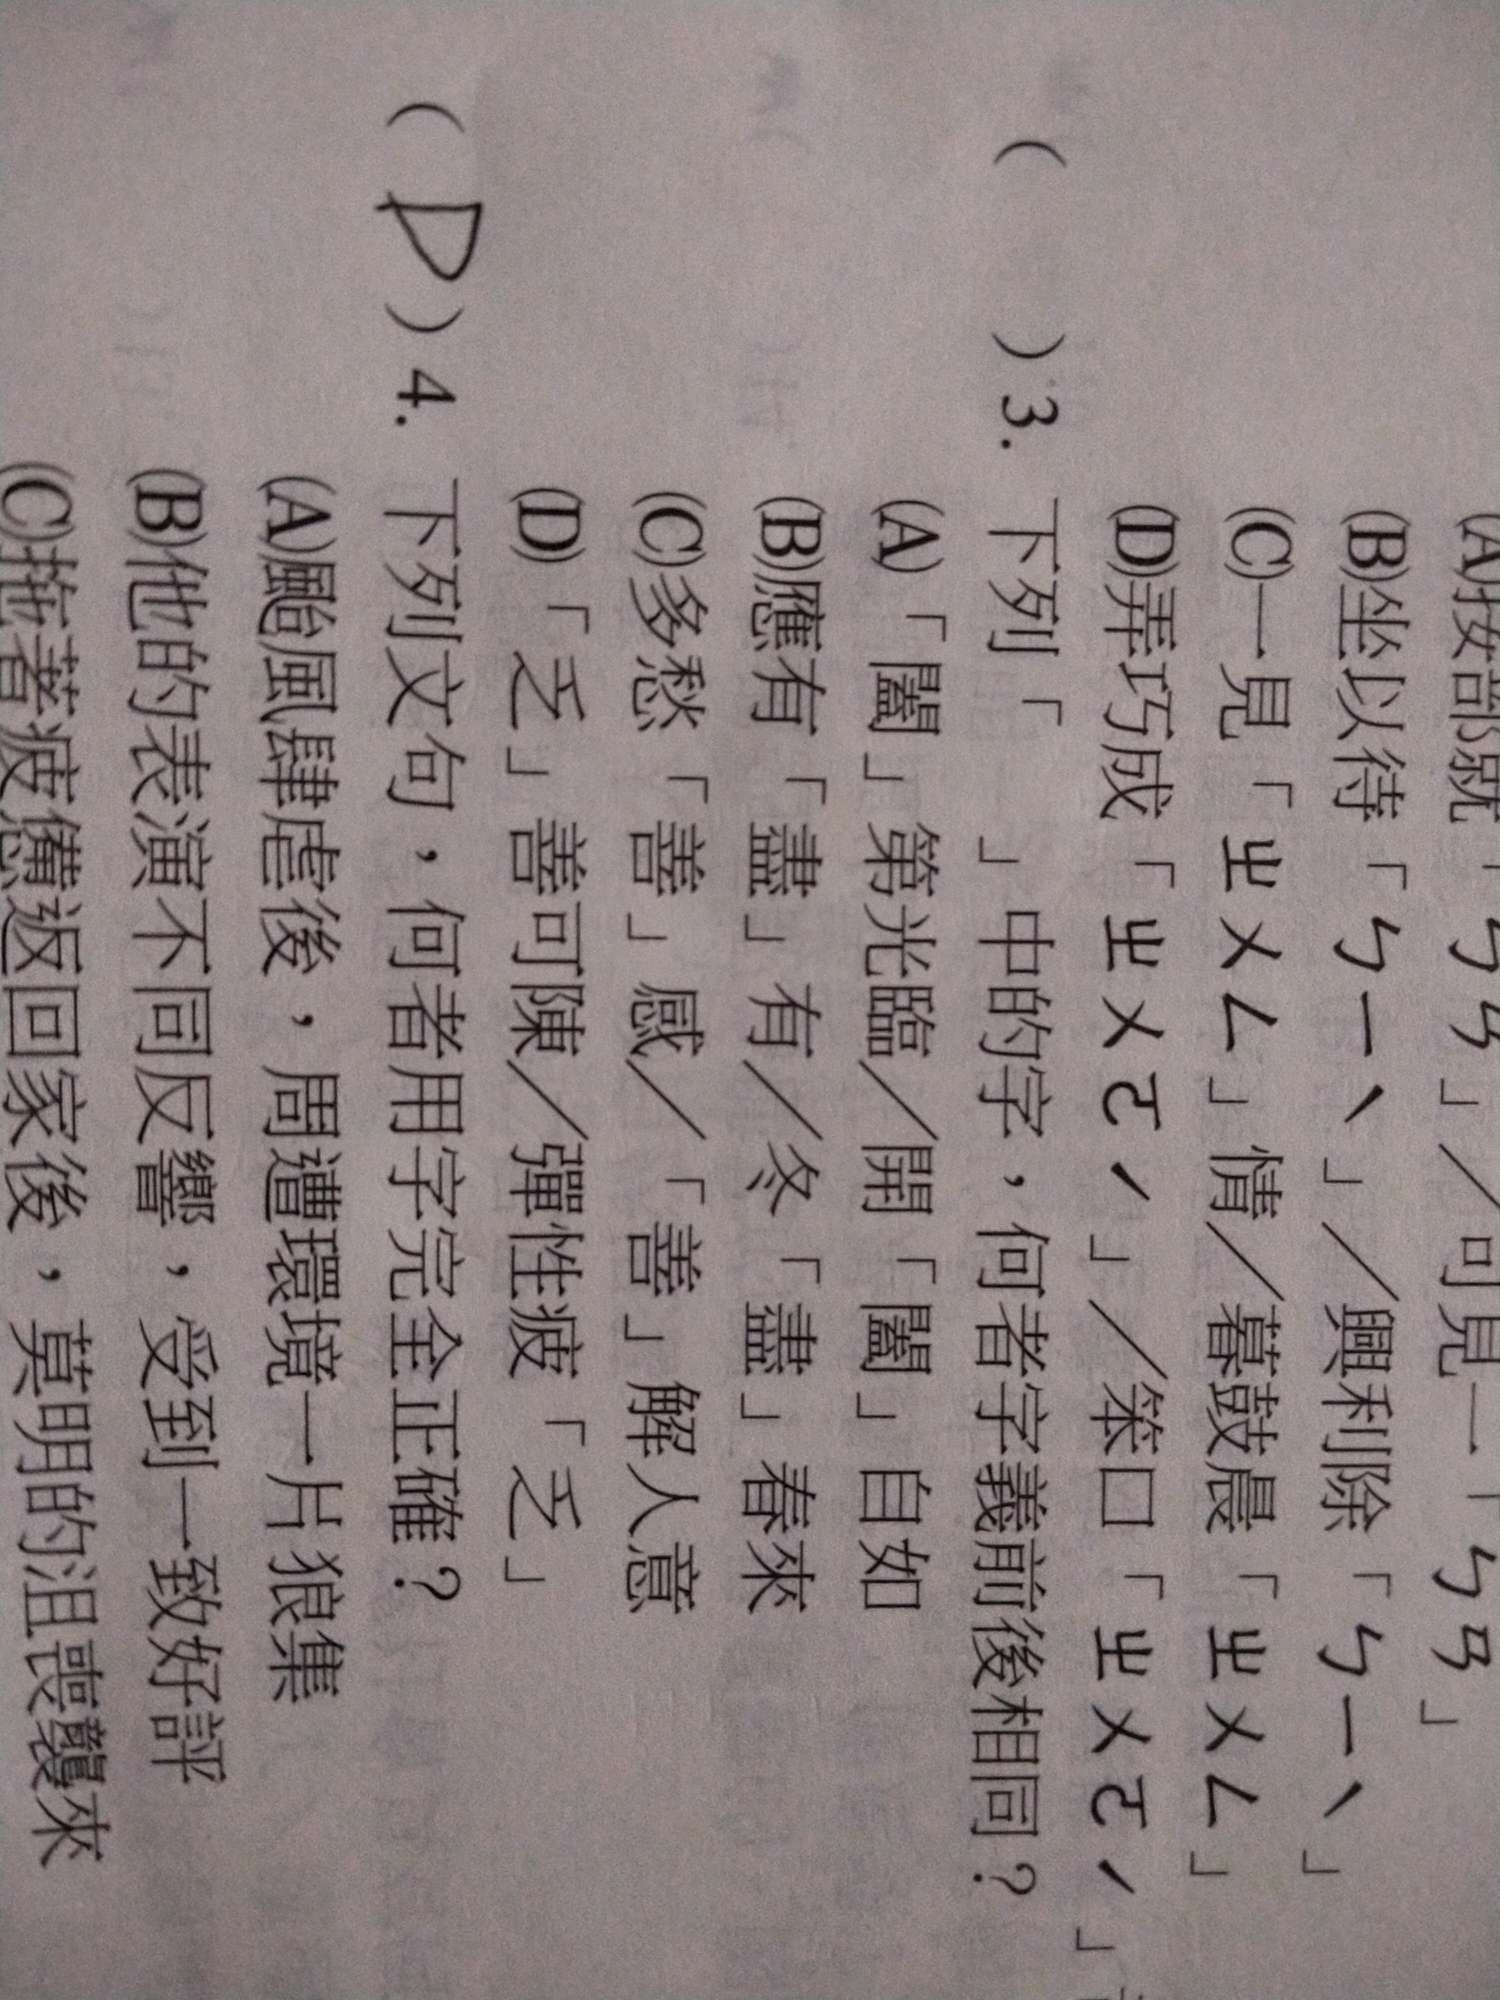 (A)按部就「ㄅㄢ」／可見一「ㄅㄢ」
(B)坐以待「ㄅㄧˋ」／興利除「ㄅㄧˋ」
(C)一見「ㄓㄨㄥ」情／暮鼓晨「ㄓㄨㄥ」
(D)弄巧成「ㄓㄨㄛˊ」／笨口「ㄓㄨㄛˊ」
(　)3. 下列「　」中的字，何者字義前後相同？
(A)「闔」第光臨／開「闔」自如
(B)應有「盡」有／冬「盡」春來
(C)多愁「善」感／「善」解人意
(D)「乏」善可陳／彈性疲「乏」
(D)4. 下列文句，何者用字完全正確？
(A)颱風肆虐後，周遭環境一片狼集
(B)他的表演不同反響，受到一致好評
(C)拖著疲憊返回家後，莫明的沮喪襲來